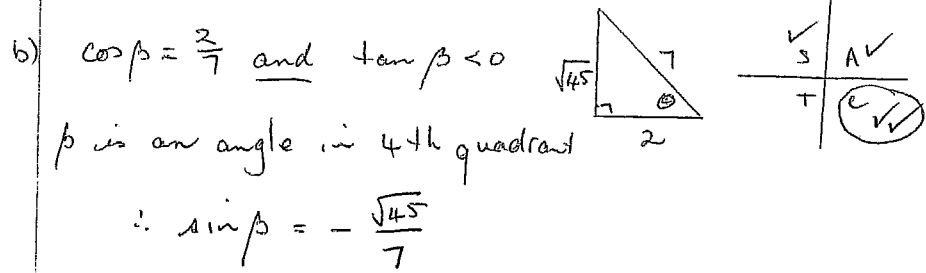 b) cos β = 2/7 and tan β < 0
√45 7 θ 2
✓ S A ✓
T C ✓✓
β is an angle in 4th quadrant
∴ sin β = - √45/7